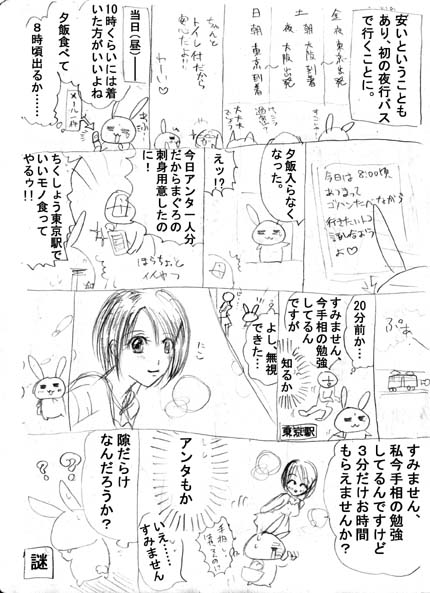 安いということも
あり、初の夜行バス
で行くことに。
金夜東京出発
〜
土朝大阪到着
夜大阪出発
〜
日朝東京到着
ちゃんと
トイレ付だから
安心だよお〜
当日(昼)――
10時くらいには着
いた方がいいよね
夕飯食べて
8時頃出るか……
メール一件
今日は8:00頃
夕飯入らなく
なった。
えッ!?
今日アンタ一人分
だからまぐろの
刺身用意したの
に!
ちくしょう東京駅で
いいモノ食って
やるゥ!!
ぷぁー
20分前か…
東京駅
すみません、
今手相の勉強
してるん
ですが
知るか
よし、無視
できた…
にこ
すみません、
私今手相の勉強
してるんですけど
3分だけお時間
もらえませんか?
アンタもか
いえ……
すみません
隙だらけ
なんだろうか?
謎